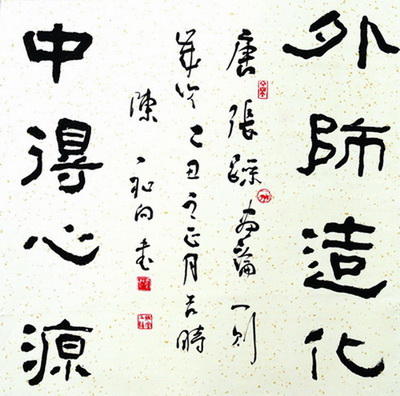 外師造化
唐張璪畫論一則
歲次己丑之正月吉時
陳
書
中得心源